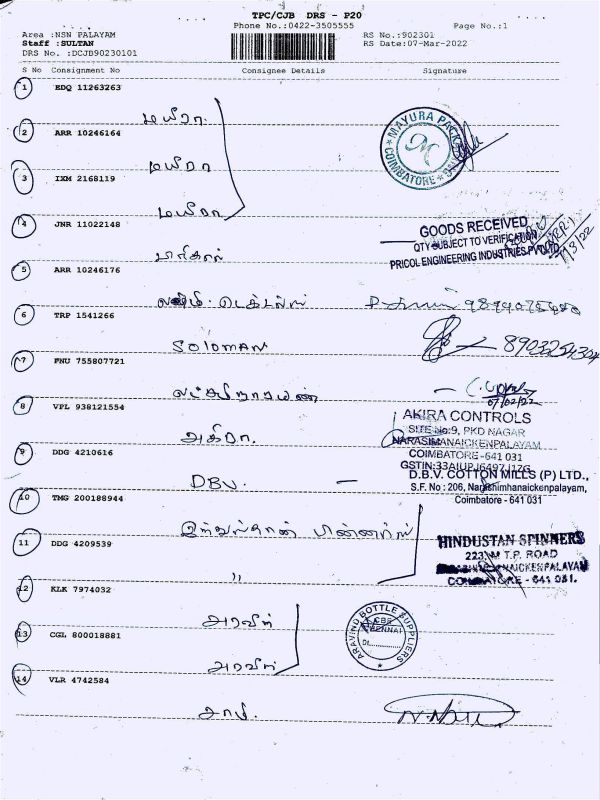 TPC/CJB DRS - P20
Phone No.:0422-3505555
Page No.:1
Area :NSN PALAYAM
RS No.:902301
Staff :SULTAN
RS Date:07-Mar-2022
DRS No. :DCJB90230101
S No Consignment No Consignee Details Signature
1 EDQ 11263263
மயூரா.
MAYURA PACK
COIMBATORE
2 ARR 10246164
மயூரா
3 IXM 2168119
மயூரா
4 JNR 11022148
GOODS RECEIVED
QTY SUBJECT TO VERIFICATION
PRICOL ENGINEERING INDUSTRIES PVT LTD
7/3/22
5 ARR 10246176
6 TRP 1541266
SOLOMAN 8903254304
7 FNU 755807721
லட்சுமிநாராயணன்
07/02/22
8 VPL 938121554
அகிரா.
AKIRA CONTROLS
SITE No:9, PKD NAGAR
NARASIMANAICKENPALAYAM
COIMBATORE-641 031
9 DDG 4210616
DBV. —
D.B.V. COTTON MILLS (P) LTD.,
S.F. No : 206, Narasimhanaickenpalayam,
Coimbatore - 641 031
10 TMG 200188944
இந்துஸ்தான்
HINDUSTAN SPINNERS
T.P. ROAD
COIMBATORE - 641 031.
11 DDG 4209539
"
12 KLK 7974032
அரவிந்
ARAVIND BOTTLE SUPPLIERS
13 CGL 800018881
அரவிந்
14 VLR 4742584